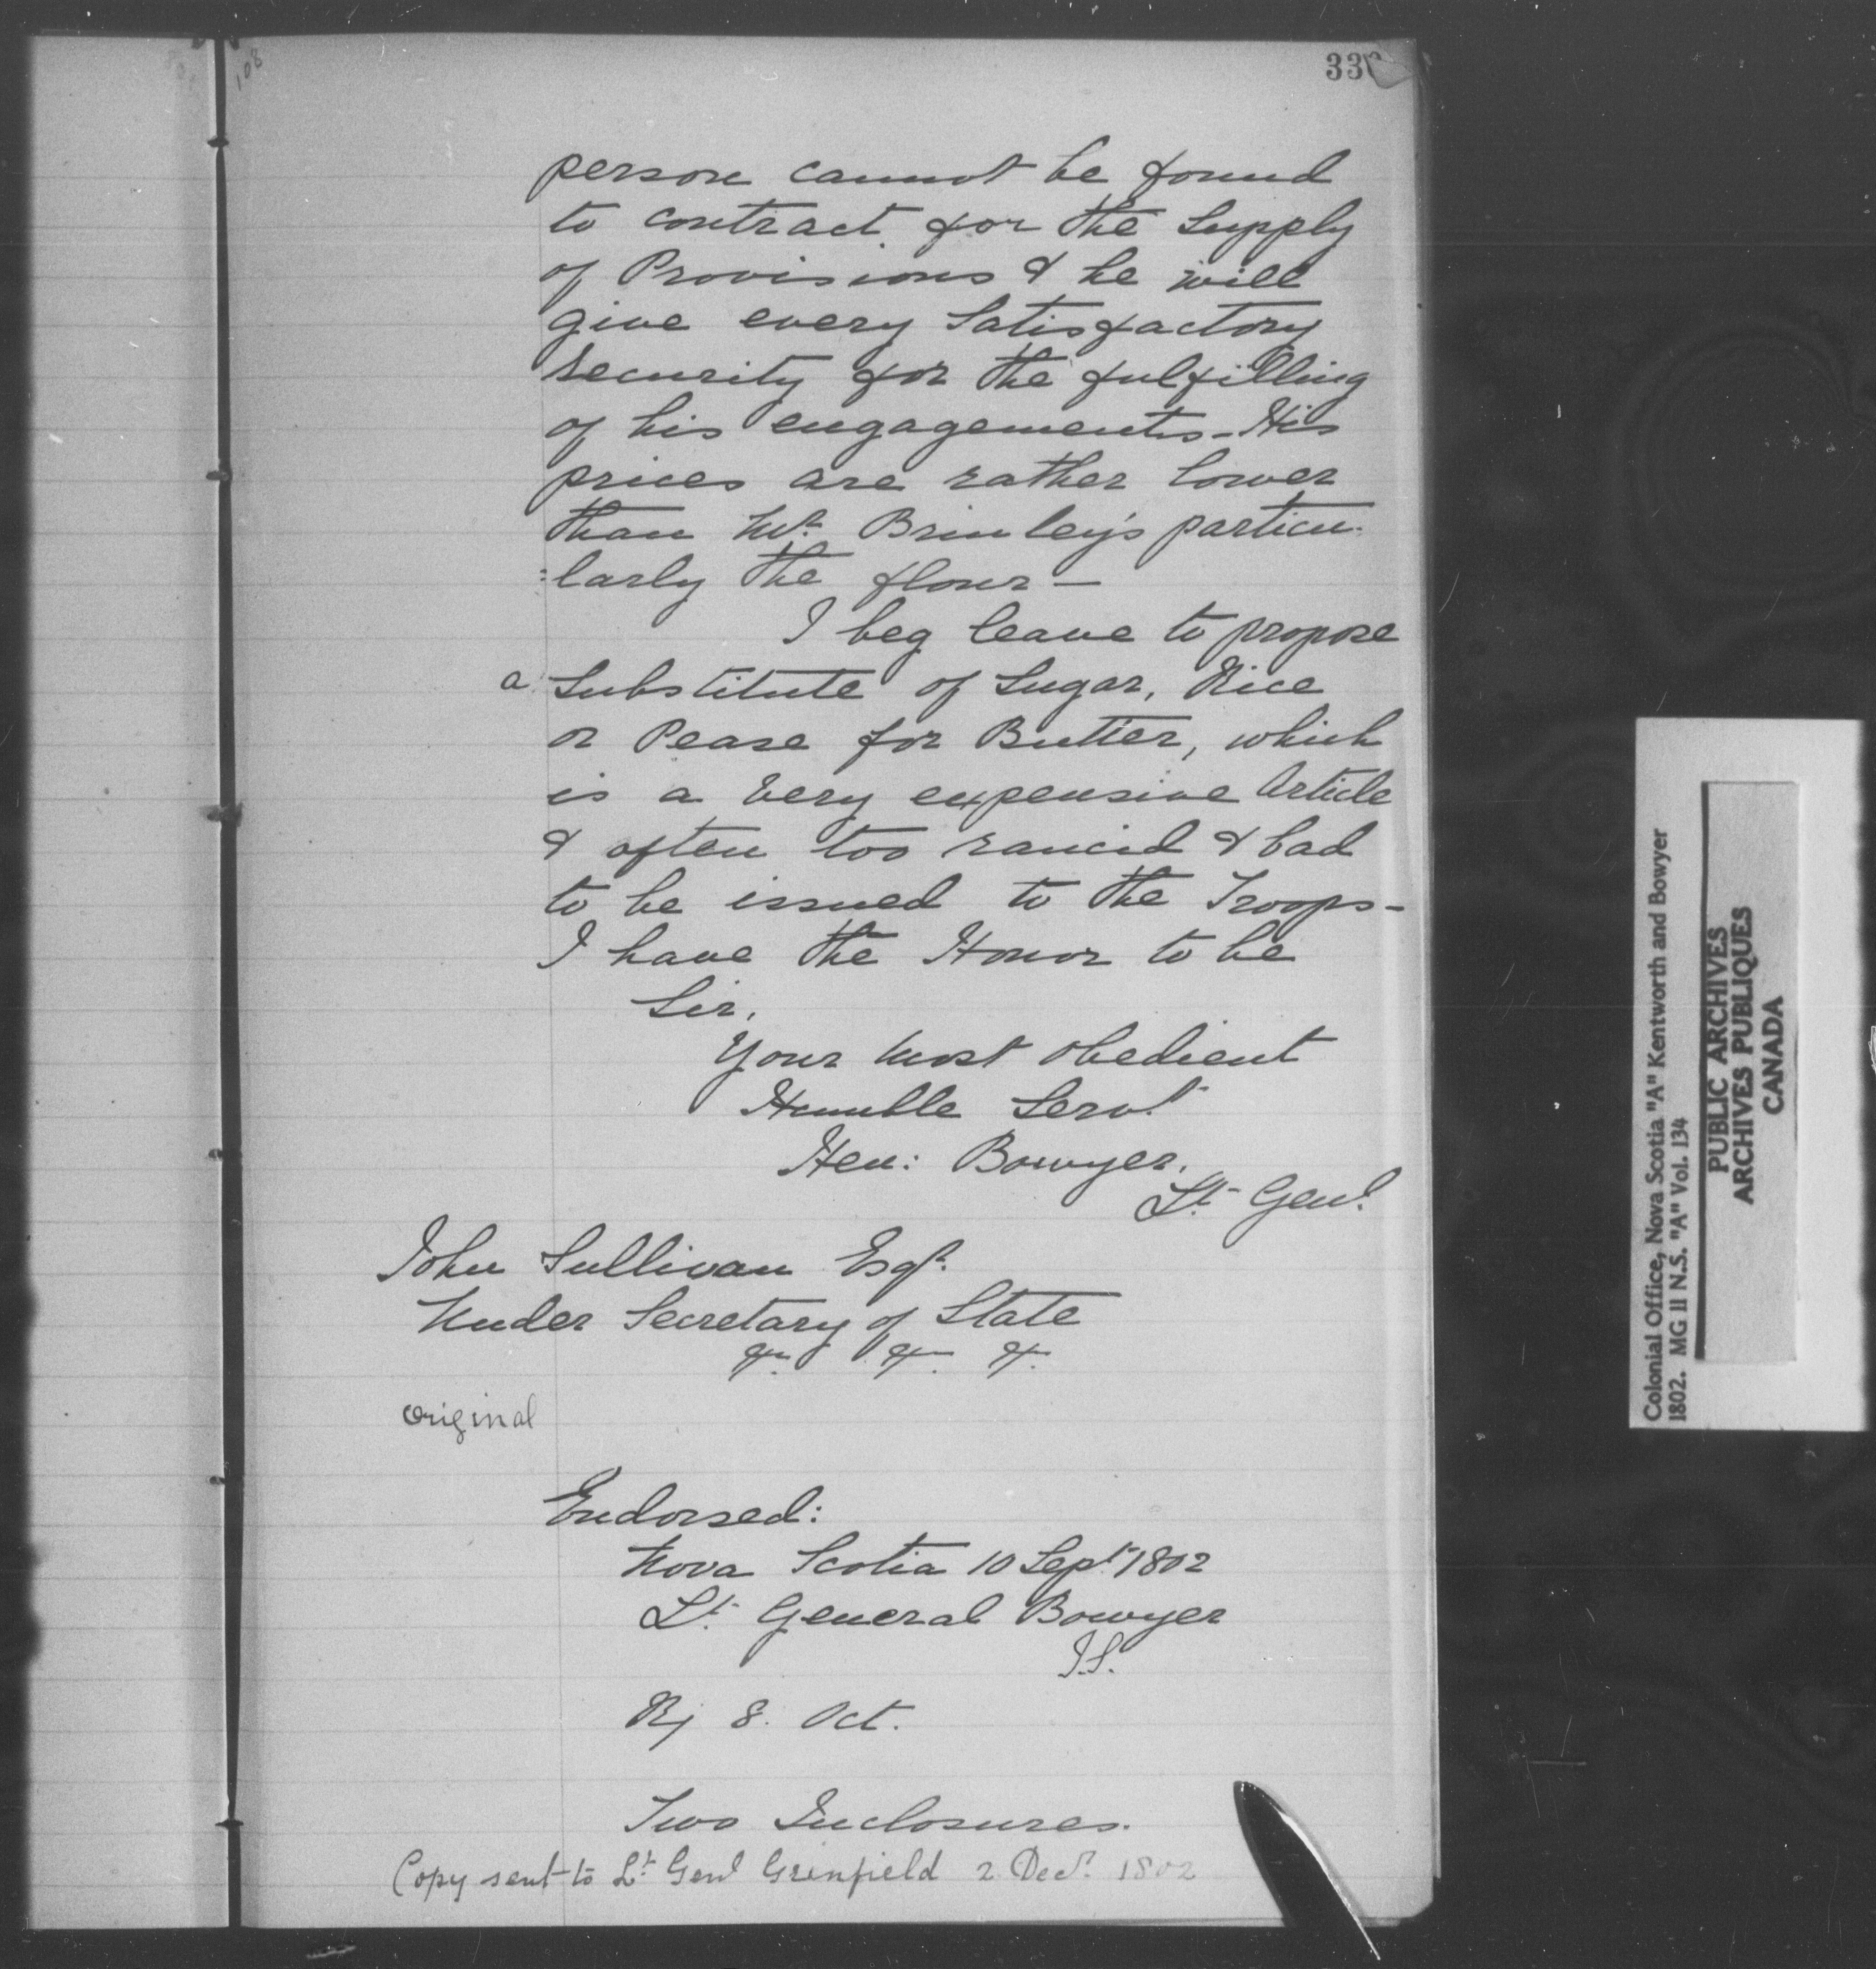 108
33
person cannot be found
to contract for the Supply
of Provisions & he will
give every Satisfactory
Security for the fulfilling
of his engagements - His
prices are rather lower
than Mr. Brinley's particu-
=larly the flour —
I beg leave to propose
a Substitute of Sugar, Rice
or Pease for Butter, which
is a very expensive Article
& often too rancid & bad
to be issued to the Troops -
I have the Honor to be
Sir,
Your most obedient
Humble Servt
Hen: Bowyer.
Lt. Genl.
John Sullivan Esqr.
Under Secretary of State
&c. &c. &c.
Original
Endorsed:
Nova Scotia 10 Sept. 1802
Lt. General Bowyer
J.S.
8. Oct.
Two Inclosures.
Copy sent to Lt. Genl Grinfield 2 Decr. 1802
Colonial Office, Nova Scotia "A" Kentworth and Bowyer
1802. MG 11 N.S. "A" Vol. 134
PUBLIC ARCHIVES
ARCHIVES PUBLIQUES
CANADA